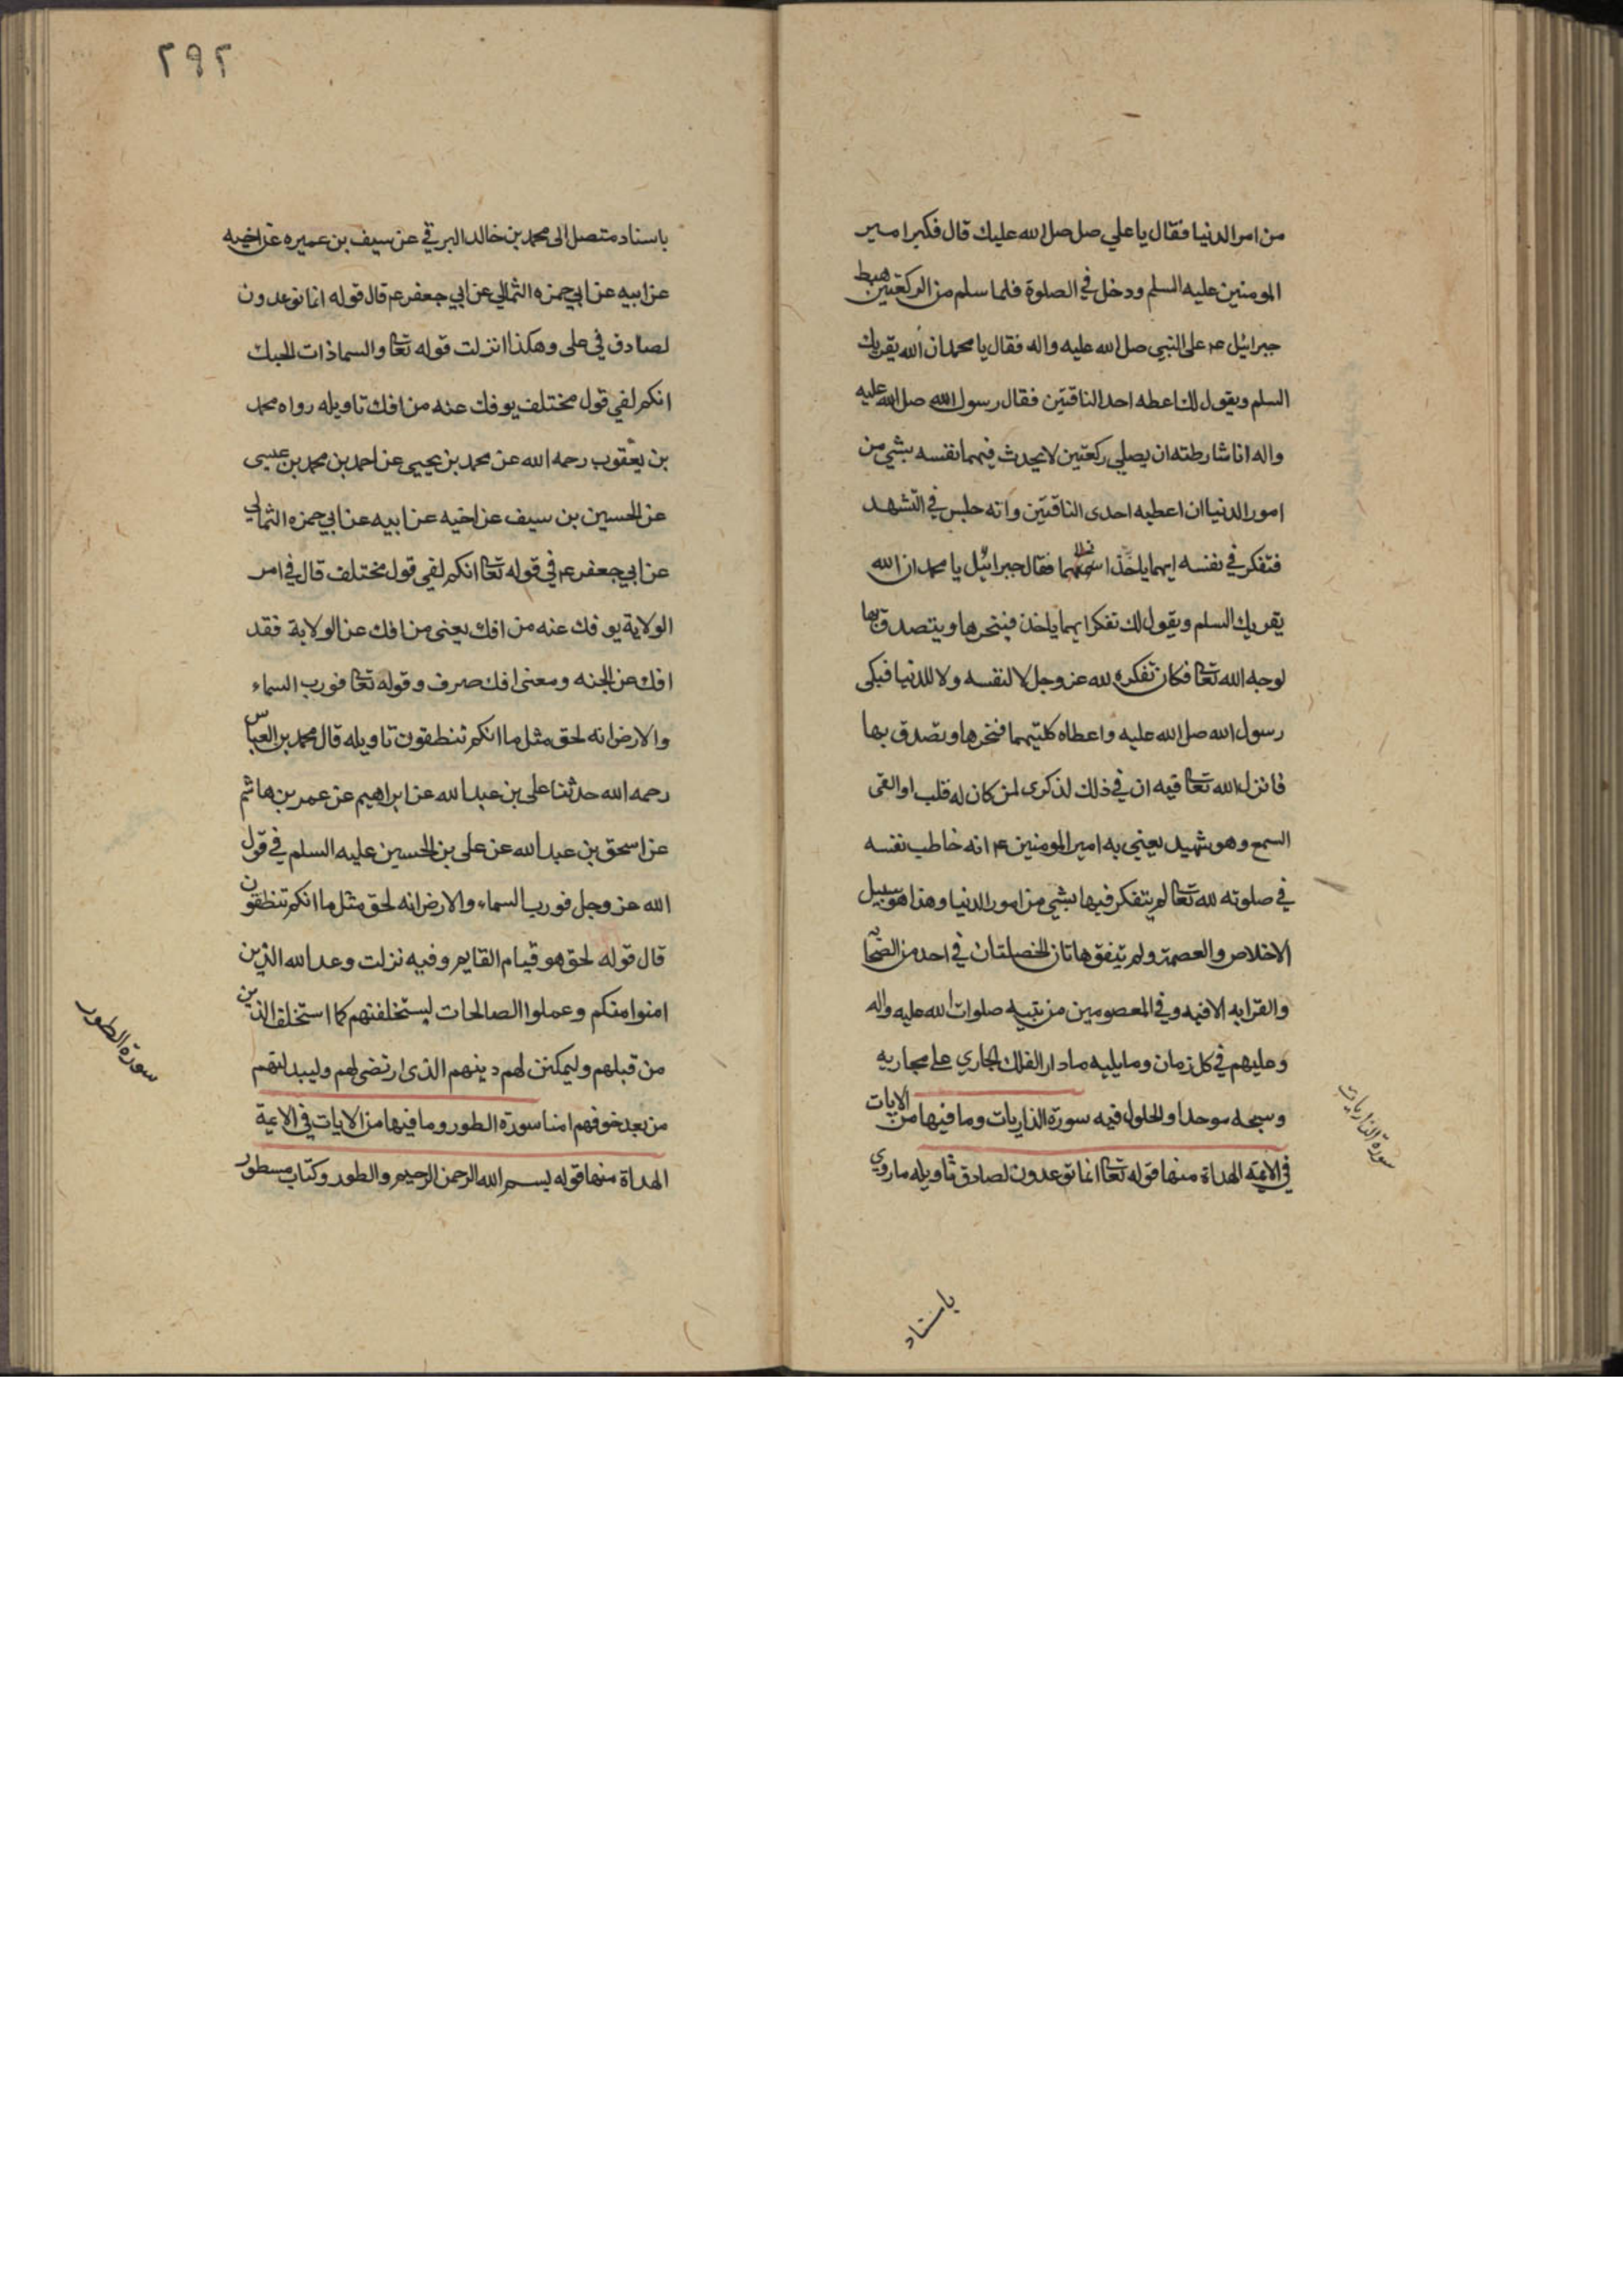 من امر الدنيا فقال يا علي صل صلى الله عليك قال فكبر امير
المومنين عليه السلم ودخل في الصلوة فلما سلم من الركعتين هبط
جبرائيل ءم على النبي صل الله عليه واله فقال يا محمد ان الله يقريك
السلم ويقول لك اعطه احد الناقتين فقال رسول الله صل الله عليه
واله انا شارطته ان يصلي ركعتين لا يحدث فيهما نفسه بشي من
امور الدنيا ان اعطيه احدى الناقتين وانه جلس في التشهد
فتفكر في نفسه ايهما ياخذ فقال جبرائيل يا محمد ان الله
يقريك السلم ويقول لك تفكر ايهما ياخذ فينحرها ويتصدق بها
لوجه الله تعا فكان تفكره لله عز وجل لا لنفسه ولا للدنيا فبكى
رسول الله صل الله عليه واعطاه كلتيهما فنحرها وتصدق بها
فانزل الله تعا فيه ان في ذلك لذكرى لمن كان له قلب او القى
السمع وهو شهيد يعني به امير المومنين ءم انه خاطب نفسه
في صلوته لله تعا لم يتفكر فيها بشي من امور الدنيا وهذا هو سبيل
الاخلاص والعصمة ولم يتفق هاتان الخصلتان في احد من الصحا
والقرابه الا فيه وفي المعصومين من بنيه صلوات الله عليه واله
وعليهم في كل زمان وما يليه ما دار الفلك الجاري على مجاريه
وسبحه موحدا والحلول فيه سورة الذاريات وما فيها من الايات
في الايمة الهداة منها قوله تعا انما توعدون لصادق تاويله ما روي
سورة الذاريات
باسناد
٢٩٢
باسناد متصل الى محمد بن خالد البرقي عن سيف بن عميره عن اخيه
عن ابيه عن ابي حمزه الثمالي عن ابي جعفر ءم قال قوله انما توعدون
لصادق في على وهكذا انزلت قوله تعا والسما ذات الحبك
انكم لفي قول مختلف يوفك عنه من افك تاويله رواه محمد
بن يعقوب رحمه الله عن محمد بن يحيى عن احمد بن محمد بن عيسى
عن الحسين بن سيف عن اخيه عن ابيه عن ابي حمزه الثمالي
عن ابي جعفر ءم في قوله تعا انكم لفي قول مختلف قال في امر
الولاية يوفك عنه من افك يعنى من افك عن الولاية فقد
افك عن الجنه ومعنى افك صرف وقوله تعا فورب السماء
والارض انه لحق مثل ما انكم تنطقون تاويله قال محمد بن العباس
رحمه الله حدثنا على بن عبد الله عن ابراهيم عن عمر بن هاشم
عن اسحق بن عبد الله عن على بن الحسين عليه السلم في قول
الله عز وجل فورب السماء والارض انه لحق مثل ما انكم تنطقون
قال قوله لحق هو قيام القايم وفيه نزلت وعد الله الذين
امنوا منكم وعملوا الصالحات ليستخلفنهم كما استخلف الذين
من قبلهم وليمكنن لهم دينهم الذى ارتضى لهم وليبدلنهم
من بعد خوفهم امنا سورة الطور وما فيها من الايات في الائمة
الهداة منها قوله بسم الله الرحمن الرحيم والطور وكتاب مسطور
سورة الطور